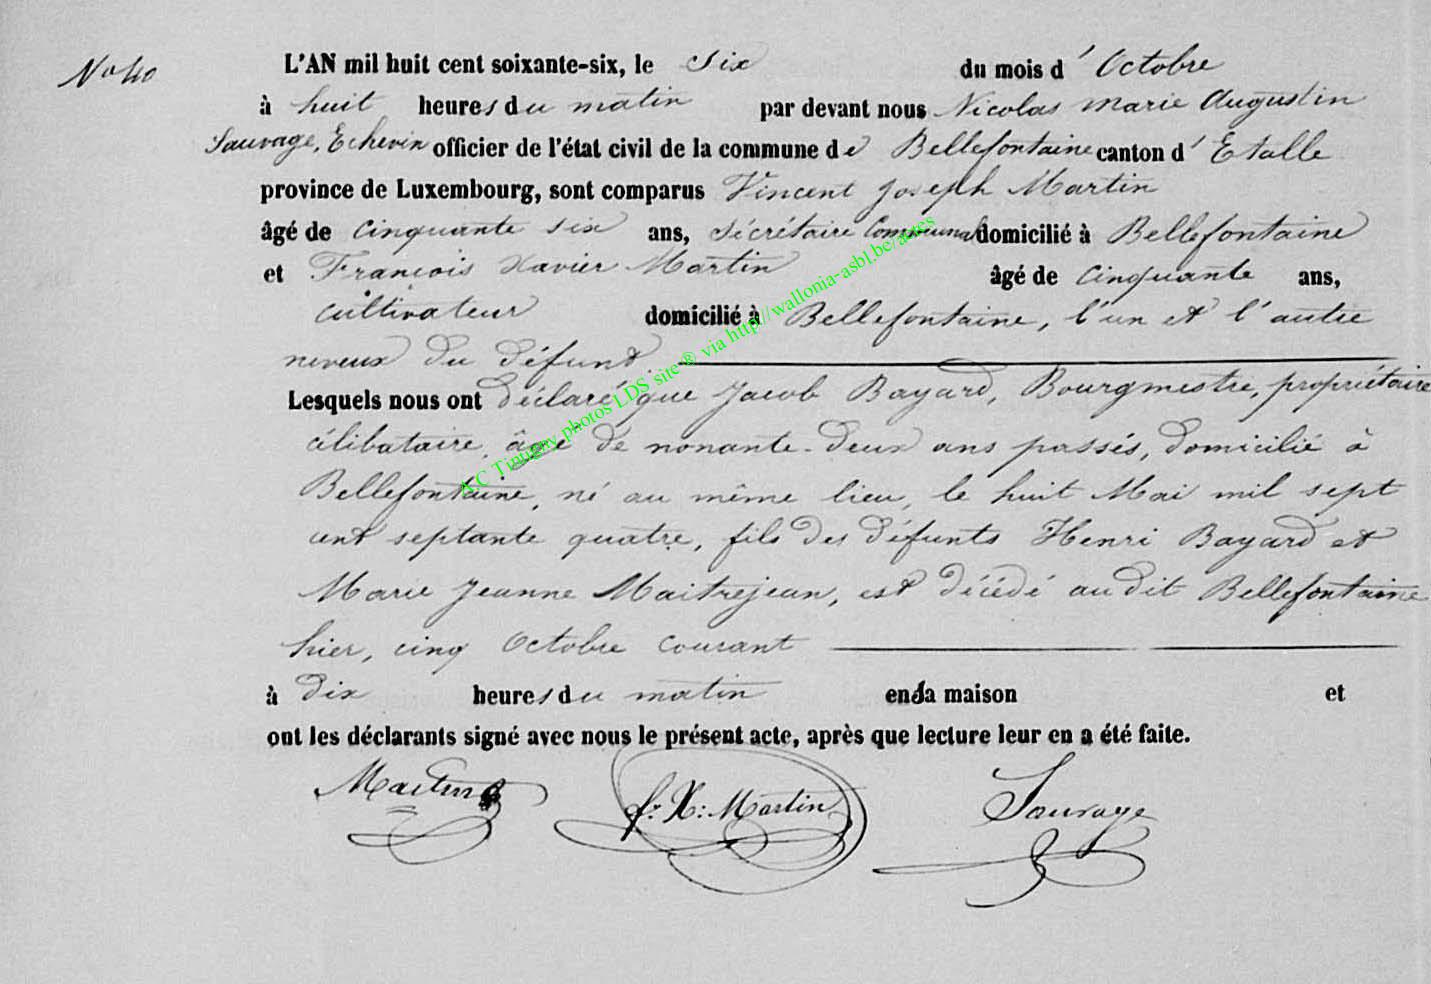 No 40
L'AN mil huit cent soixante-six, le six du mois d'Octobre
à huit heures du matin par devant nous Nicolas Marie Augustin
Sauvage, Echevin officier de l'état civil de la commune de Bellefontaine canton d'Etalle
province de Luxembourg, sont comparus Vincent Joseph Martin
âgé de cinquante six ans, Sécrétaire Communal domicilié à Bellefontaine
et François Xavier Martin âgé de cinquante ans,
cultivateur domicilié à Bellefontaine, l'un et l'autre
neveux du défunt
Lesquels nous ont déclaré que Jacob Bayard, Bourgmestre, propriétaire
célibataire, âgé de nonante-deux ans passés, domicilié à
Bellefontaine, né au même lieu, le huit Mai mil sept
cent septante quatre, fils des défunts Henri Bayard et
Marie Jeanne Maitrejean, est décédé au dit Bellefontaine
hier, cinq Octobre courant
à dix heures du matin en sa maison et
ont les déclarants signé avec nous le présent acte, après que lecture leur en a été faite.
Martin
f. X: Martin
Sauvage
A.C Tintigny photos LDS site ® via http://wallonia-asbl.be/actes